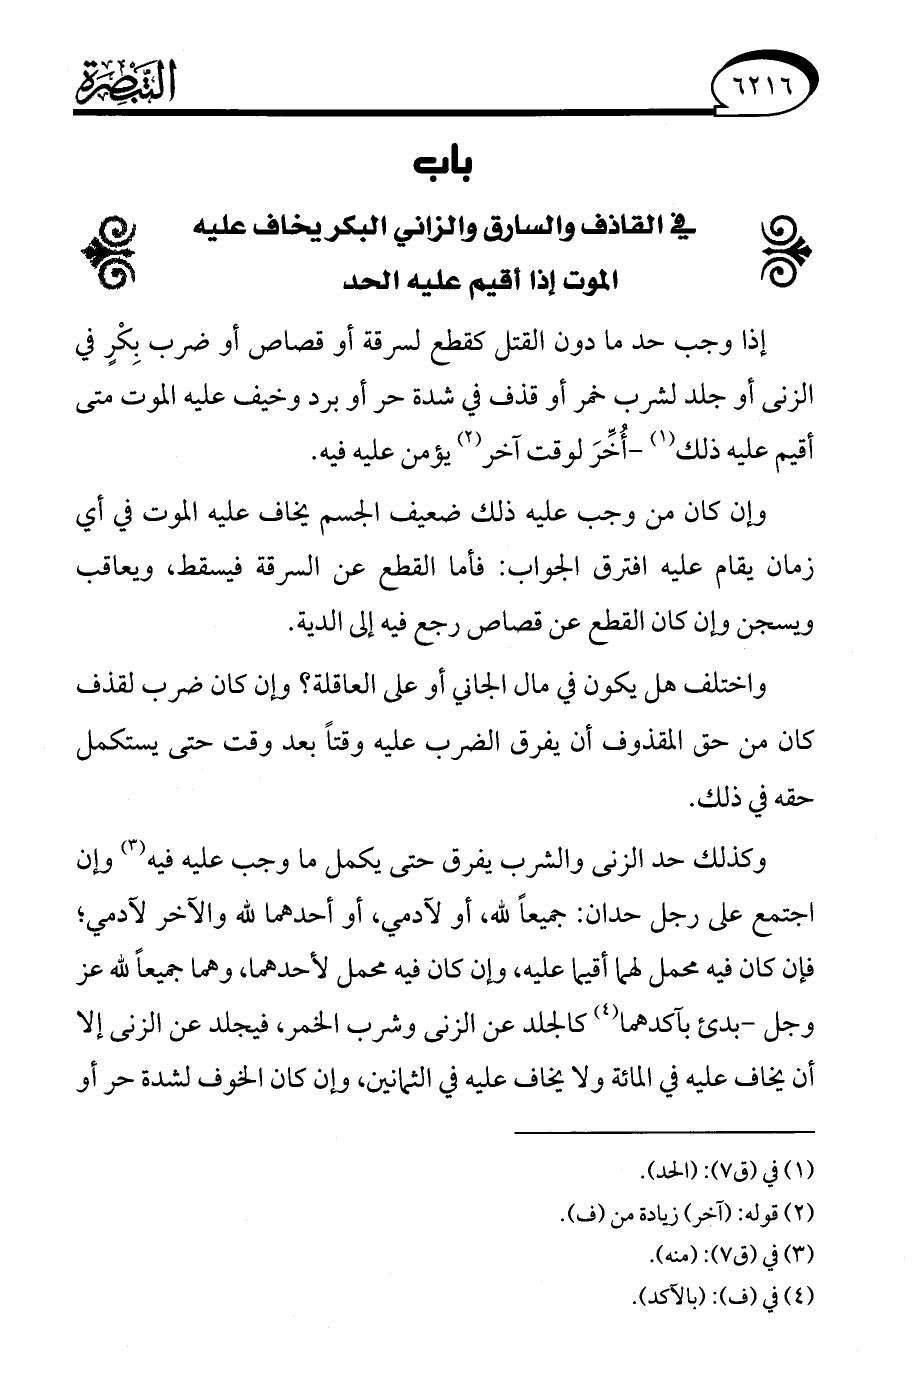 ٦٢١٦
التبصرة
باب
في القاذف والسارق والزاني البكر يخاف عليه
الموت إذا أقيم عليه الحد
إذا وجب حد ما دون القتل كقطع لسرقة أو قصاص أو ضرب بِكْرٍ في
الزنى أو جلد لشرب خمر أو قذف في شدة حر أو برد وخيف عليه الموت متى
أقيم عليه ذلك(١) -أُخِّرَ لوقت آخر(٢) يؤمن عليه فيه.
وإن كان من وجب عليه ذلك ضعيف الجسم يخاف عليه الموت في أي
زمان يقام عليه افترق الجواب: فأما القطع عن السرقة فيسقط، ويعاقب
ويسجن وإن كان القطع عن قصاص رجع فيه إلى الدية.
واختلف هل يكون في مال الجاني أو على العاقلة؟ وإن كان ضرب لقذف
كان من حق المقذوف أن يفرق الضرب عليه وقتاً بعد وقت حتى يستكمل
حقه في ذلك.
وكذلك حد الزنى والشرب يفرق حتى يكمل ما وجب عليه فيه(٣) وإن
اجتمع على رجل حدان: جميعاً لله، أو لآدمي، أو أحدهما لله والآخر لآدمي؛
فإن كان فيه محمل لهما أقيما عليه، وإن كان فيه محمل لأحدهما، وهما جميعاً لله عز
وجل -بدئ بآكدهما(٤) كالجلد عن الزنى وشرب الخمر، فيجلد عن الزنى إلا
أن يخاف عليه في المائة ولا يخاف عليه في الثمانين، وإن كان الخوف لشدة حر أو
(١) في (ق٧): (الحد).
(٢) قوله: (آخر) زيادة من (ف).
(٣) في (ق٧): (منه).
(٤) في (ف): (بالآكد).